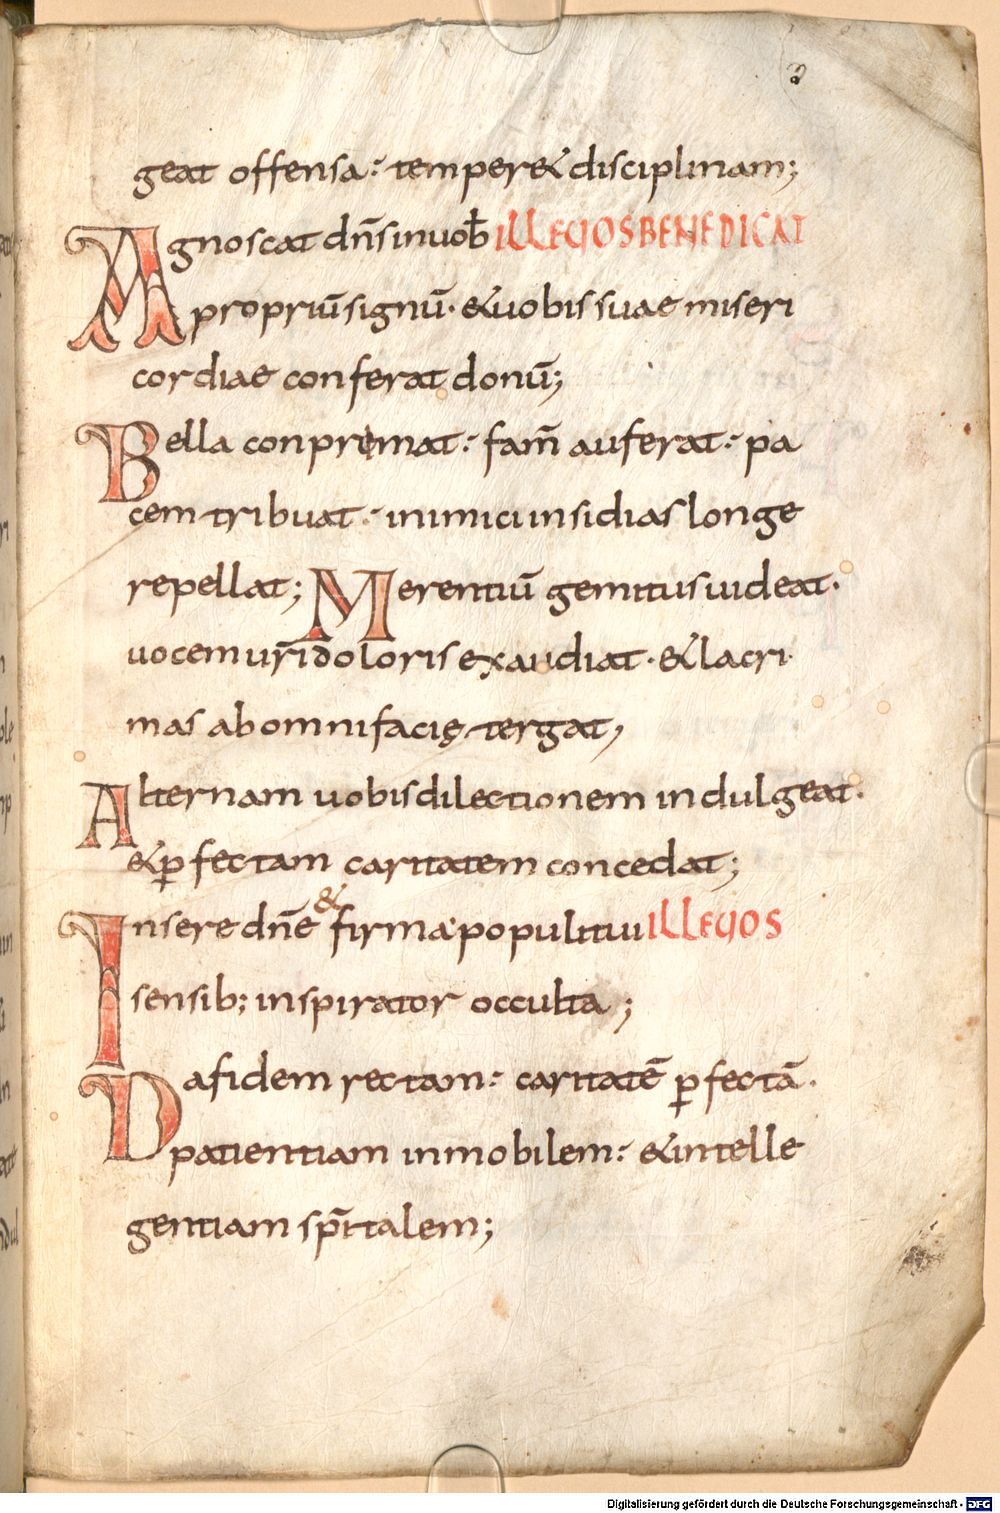 3
geat offensa: temper& disciplinam;
Agnoscat dn̄s in uob̄ ILLE QIOS BENEDICAT
propriū signū· & uobis suae miseri
cordiae conferat donū;
Bella conpremat: fam̄ auferat: pa
cem tribuat: inimici insidias longe
repellat; Merentiū gemitus uideat·
uocem ur̄i doloris exaudiat· & lacri
mas ab omni facię tergat;
Alternam uobis dilectionem indulgeat·
& ꝑfectam caritatem concedat;
Insere dn̄e & firma populi tui ILLE QIOS
sensib; inspirator occulta;
Da fidem rectam: caritatē ꝑfectā·
patientiam inmobilem: & intelle
gentiam sp̄italem;
Digitalisierung gefördert durch die Deutsche Forschungsgemeinschaft - DFG